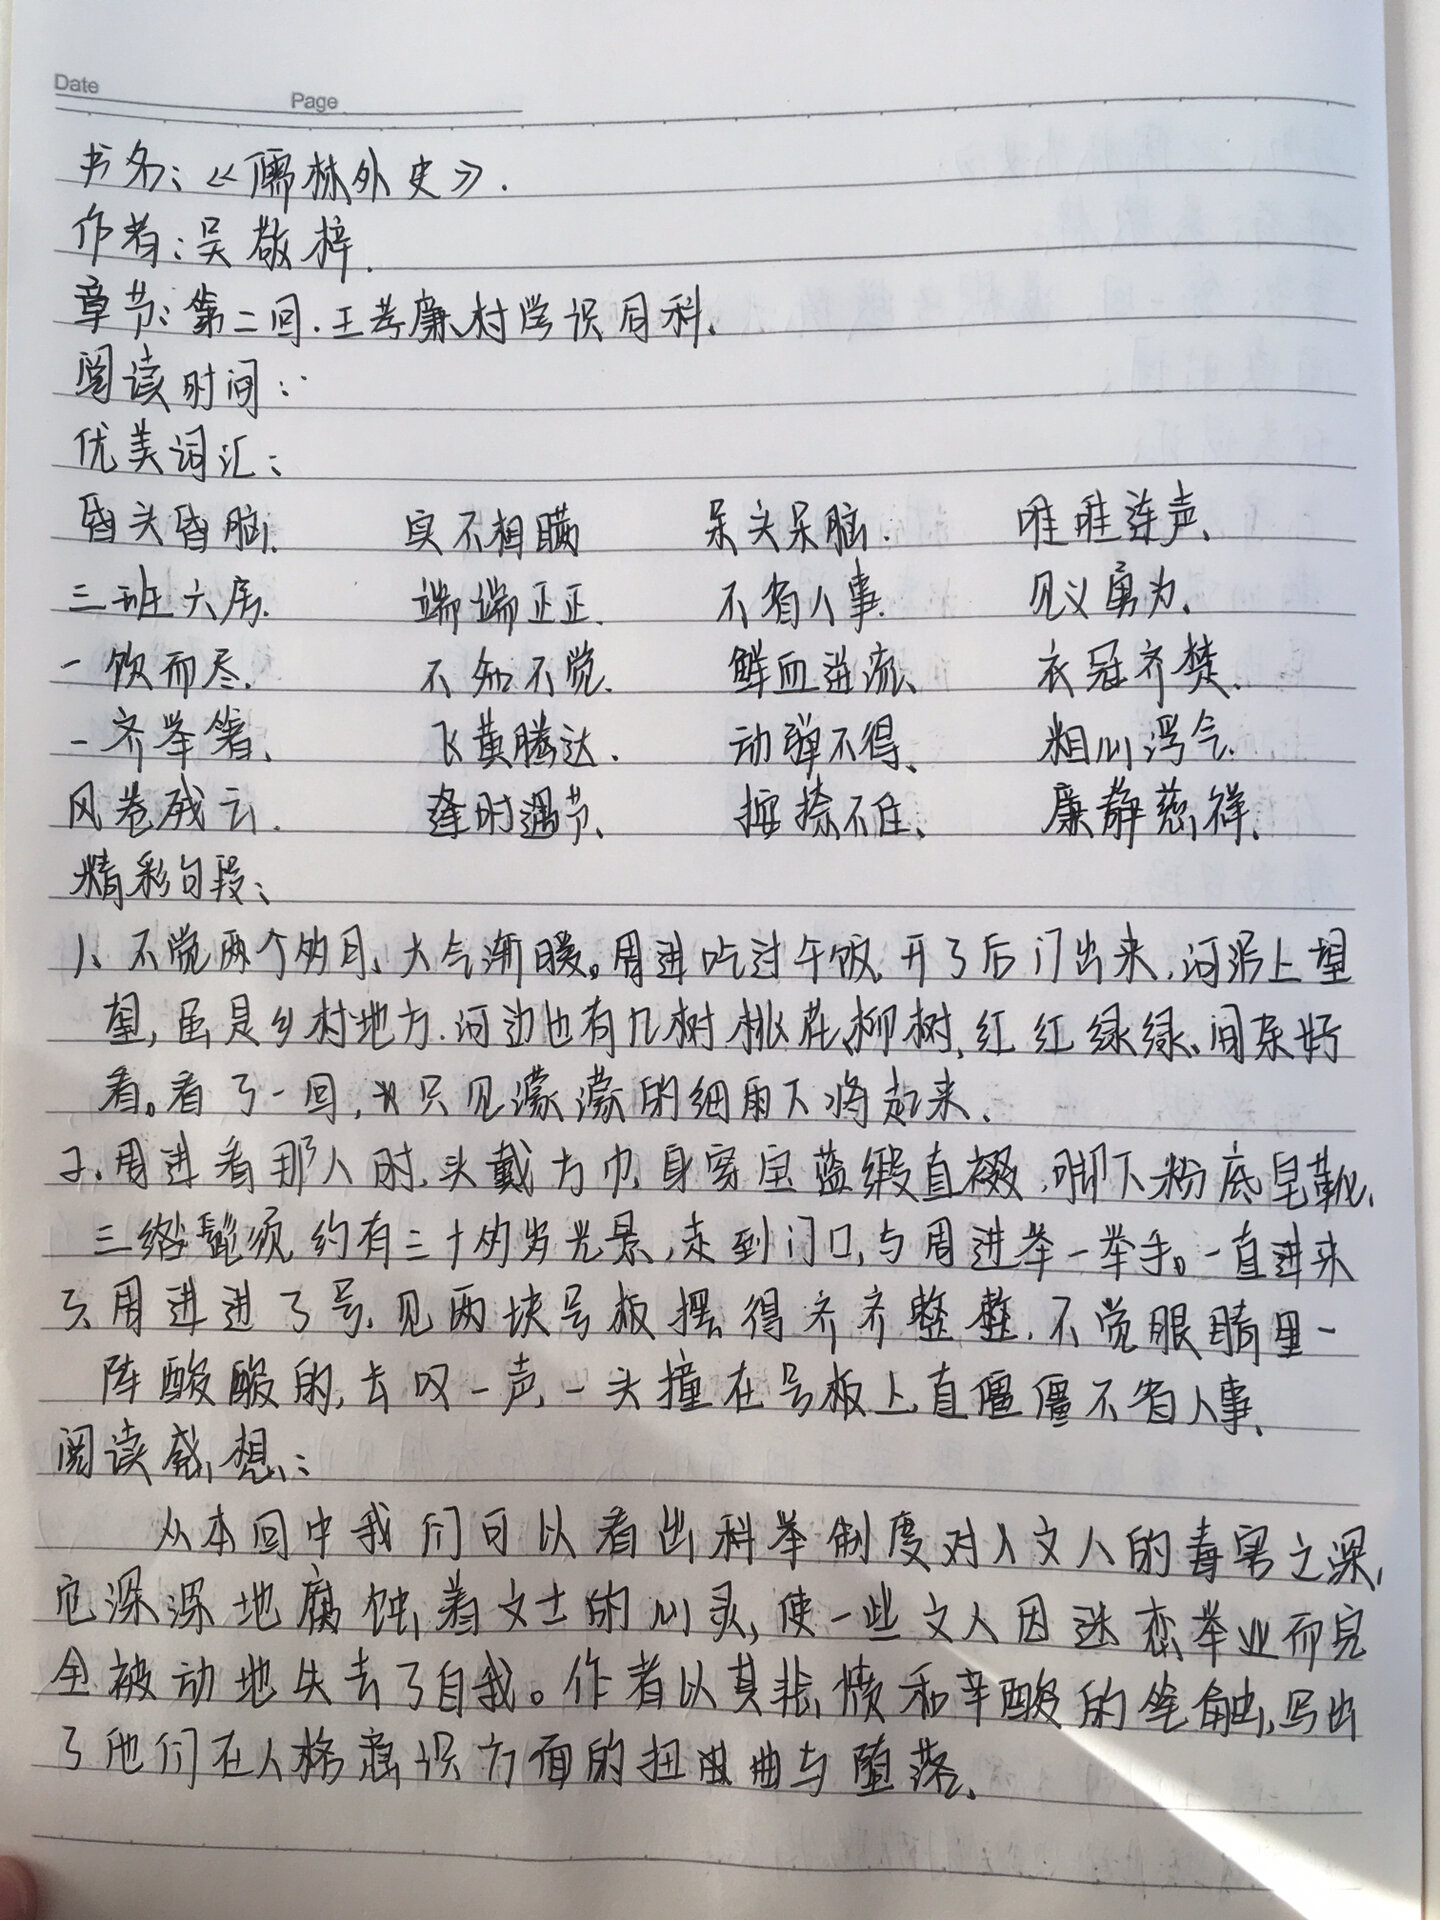 Date
Page
书名:《儒林外史》.
作者:吴敬梓.
章节:第二回.王孝廉村学识同科.
阅读时间:
优美词汇:
昏头昏脑. 实不相瞒 呆头呆脑. 唯唯连声.
三班六房. 端端正正. 不省人事. 见义勇为.
一饮而尽. 不知不觉. 鲜血迸流. 衣冠齐楚.
一齐举箸. 飞黄腾达. 动弹不得. 粗心浮气.
风卷残云. 逢时遇节. 按捺不住. 廉静慈祥.
精彩句段:
1、不觉两个多月、天气渐暖。周进吃过午饭,开了后门出来,河沿上望
望,虽是乡村地方.河边也有几树桃花柳树,红红绿绿、间杂好
看。看了一回,只见濛濛的细雨下将起来.
2.周进看那人时,头戴方巾,身穿宝蓝缎直裰,脚下粉底皂靴,
三绺髭须,约有三十多岁光景,走到门口,与周进举一举手。一直进来
3.周进进了号,见两块号板摆得齐齐整整,不觉眼睛里一
阵酸酸的,长叹一声,一头撞在号板上,直僵僵不省人事.
阅读感想:
从本回中我们可以看出科举制度对文人的毒害之深,
它深深地腐蚀着文士的心灵,使一些文人因迷恋举业而完
全被动地失去了自我。作者以其悲愤和辛酸的笔触,写出
了他们在人格意识方面的扭曲与堕落.